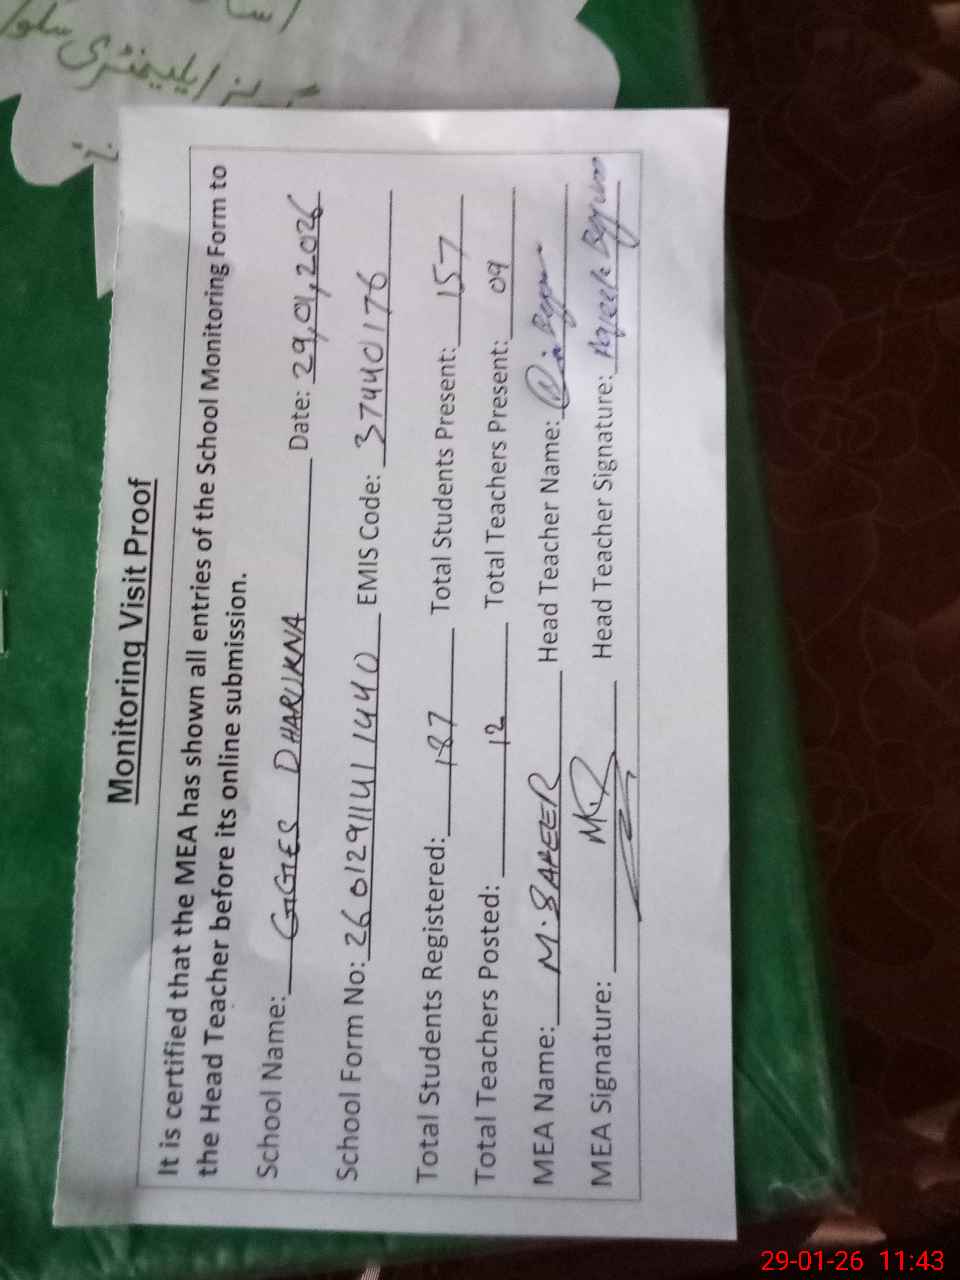 ایلیمنٹری
Monitoring Visit Proof
It is certified that the MEA has shown all entries of the School Monitoring Form to
the Head Teacher before its online submission.
School Name: GGES DHARUKNA Date: 29,01,2026
School Form No: 260129114111440 EMIS Code: 37440176
Total Students Registered: 187 Total Students Present: 157
Total Teachers Posted: 12 Total Teachers Present: 09
MEA Name: M. SAFEER Head Teacher Name:
MEA Signature: Head Teacher Signature: Begum
29-01-26 11:43